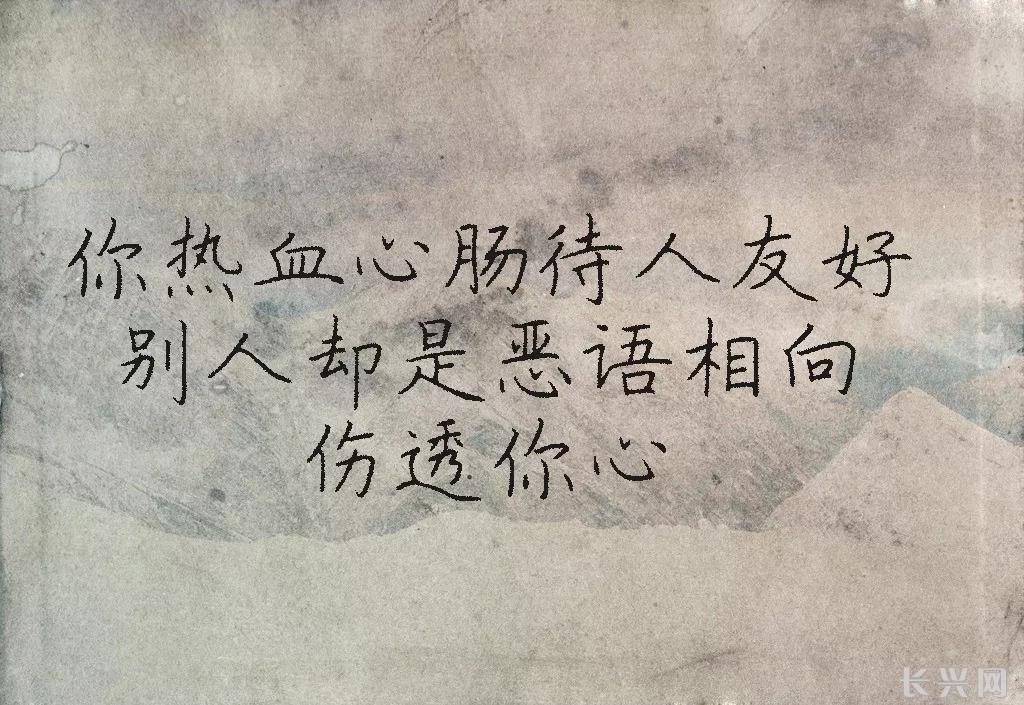 你热血心肠待人友好
别人却是恶语相向
伤透你心
长兴网